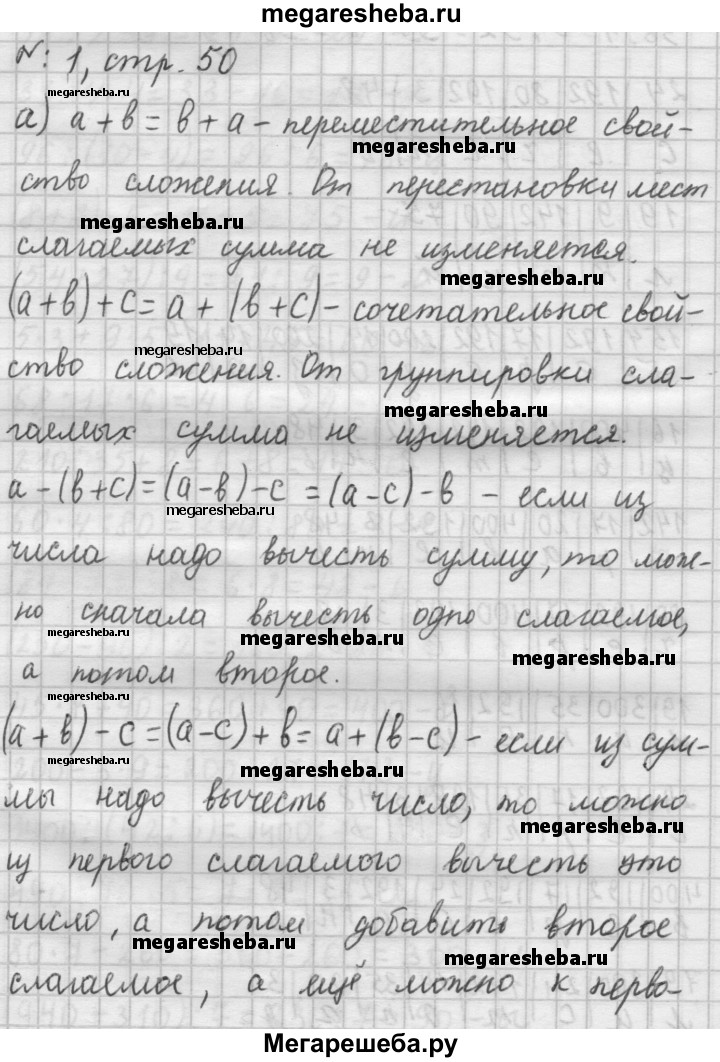 megaresheba.ru
№: 1, стр. 50
megaresheba.ru
а) а + в = в + а - переместительное свой-
megaresheba.ru
ство сложения. От перестановки мест
megaresheba.ru
слагаемых сумма не изменяется.
megaresheba.ru
(а+в)+с=а+(в+с)- сочетательное свой-
megaresheba.ru
ство сложения. От группировки сла-
megaresheba.ru
гаемых сумма не изменяется.
а-(в+с)=(а-в)-с=(а-с)-в - если из
megaresheba.ru
числа надо вычесть сумму, то мож-
но сначала вычесть одно слагаемое,
megaresheba.ru megaresheba.ru
megaresheba.ru
а потом второе.
megaresheba.ru
(а+в)-с=(а-с)+в=а+(в-с)- если из сум-
megaresheba.ru megaresheba.ru
мы надо вычесть число, то можно
megaresheba.ru
из первого слагаемого вычесть это
число, а потом добавить второе
megaresheba.ru
megaresheba.ru
слагаемое, а ещё можно к перво-
Мегарешеба.ру